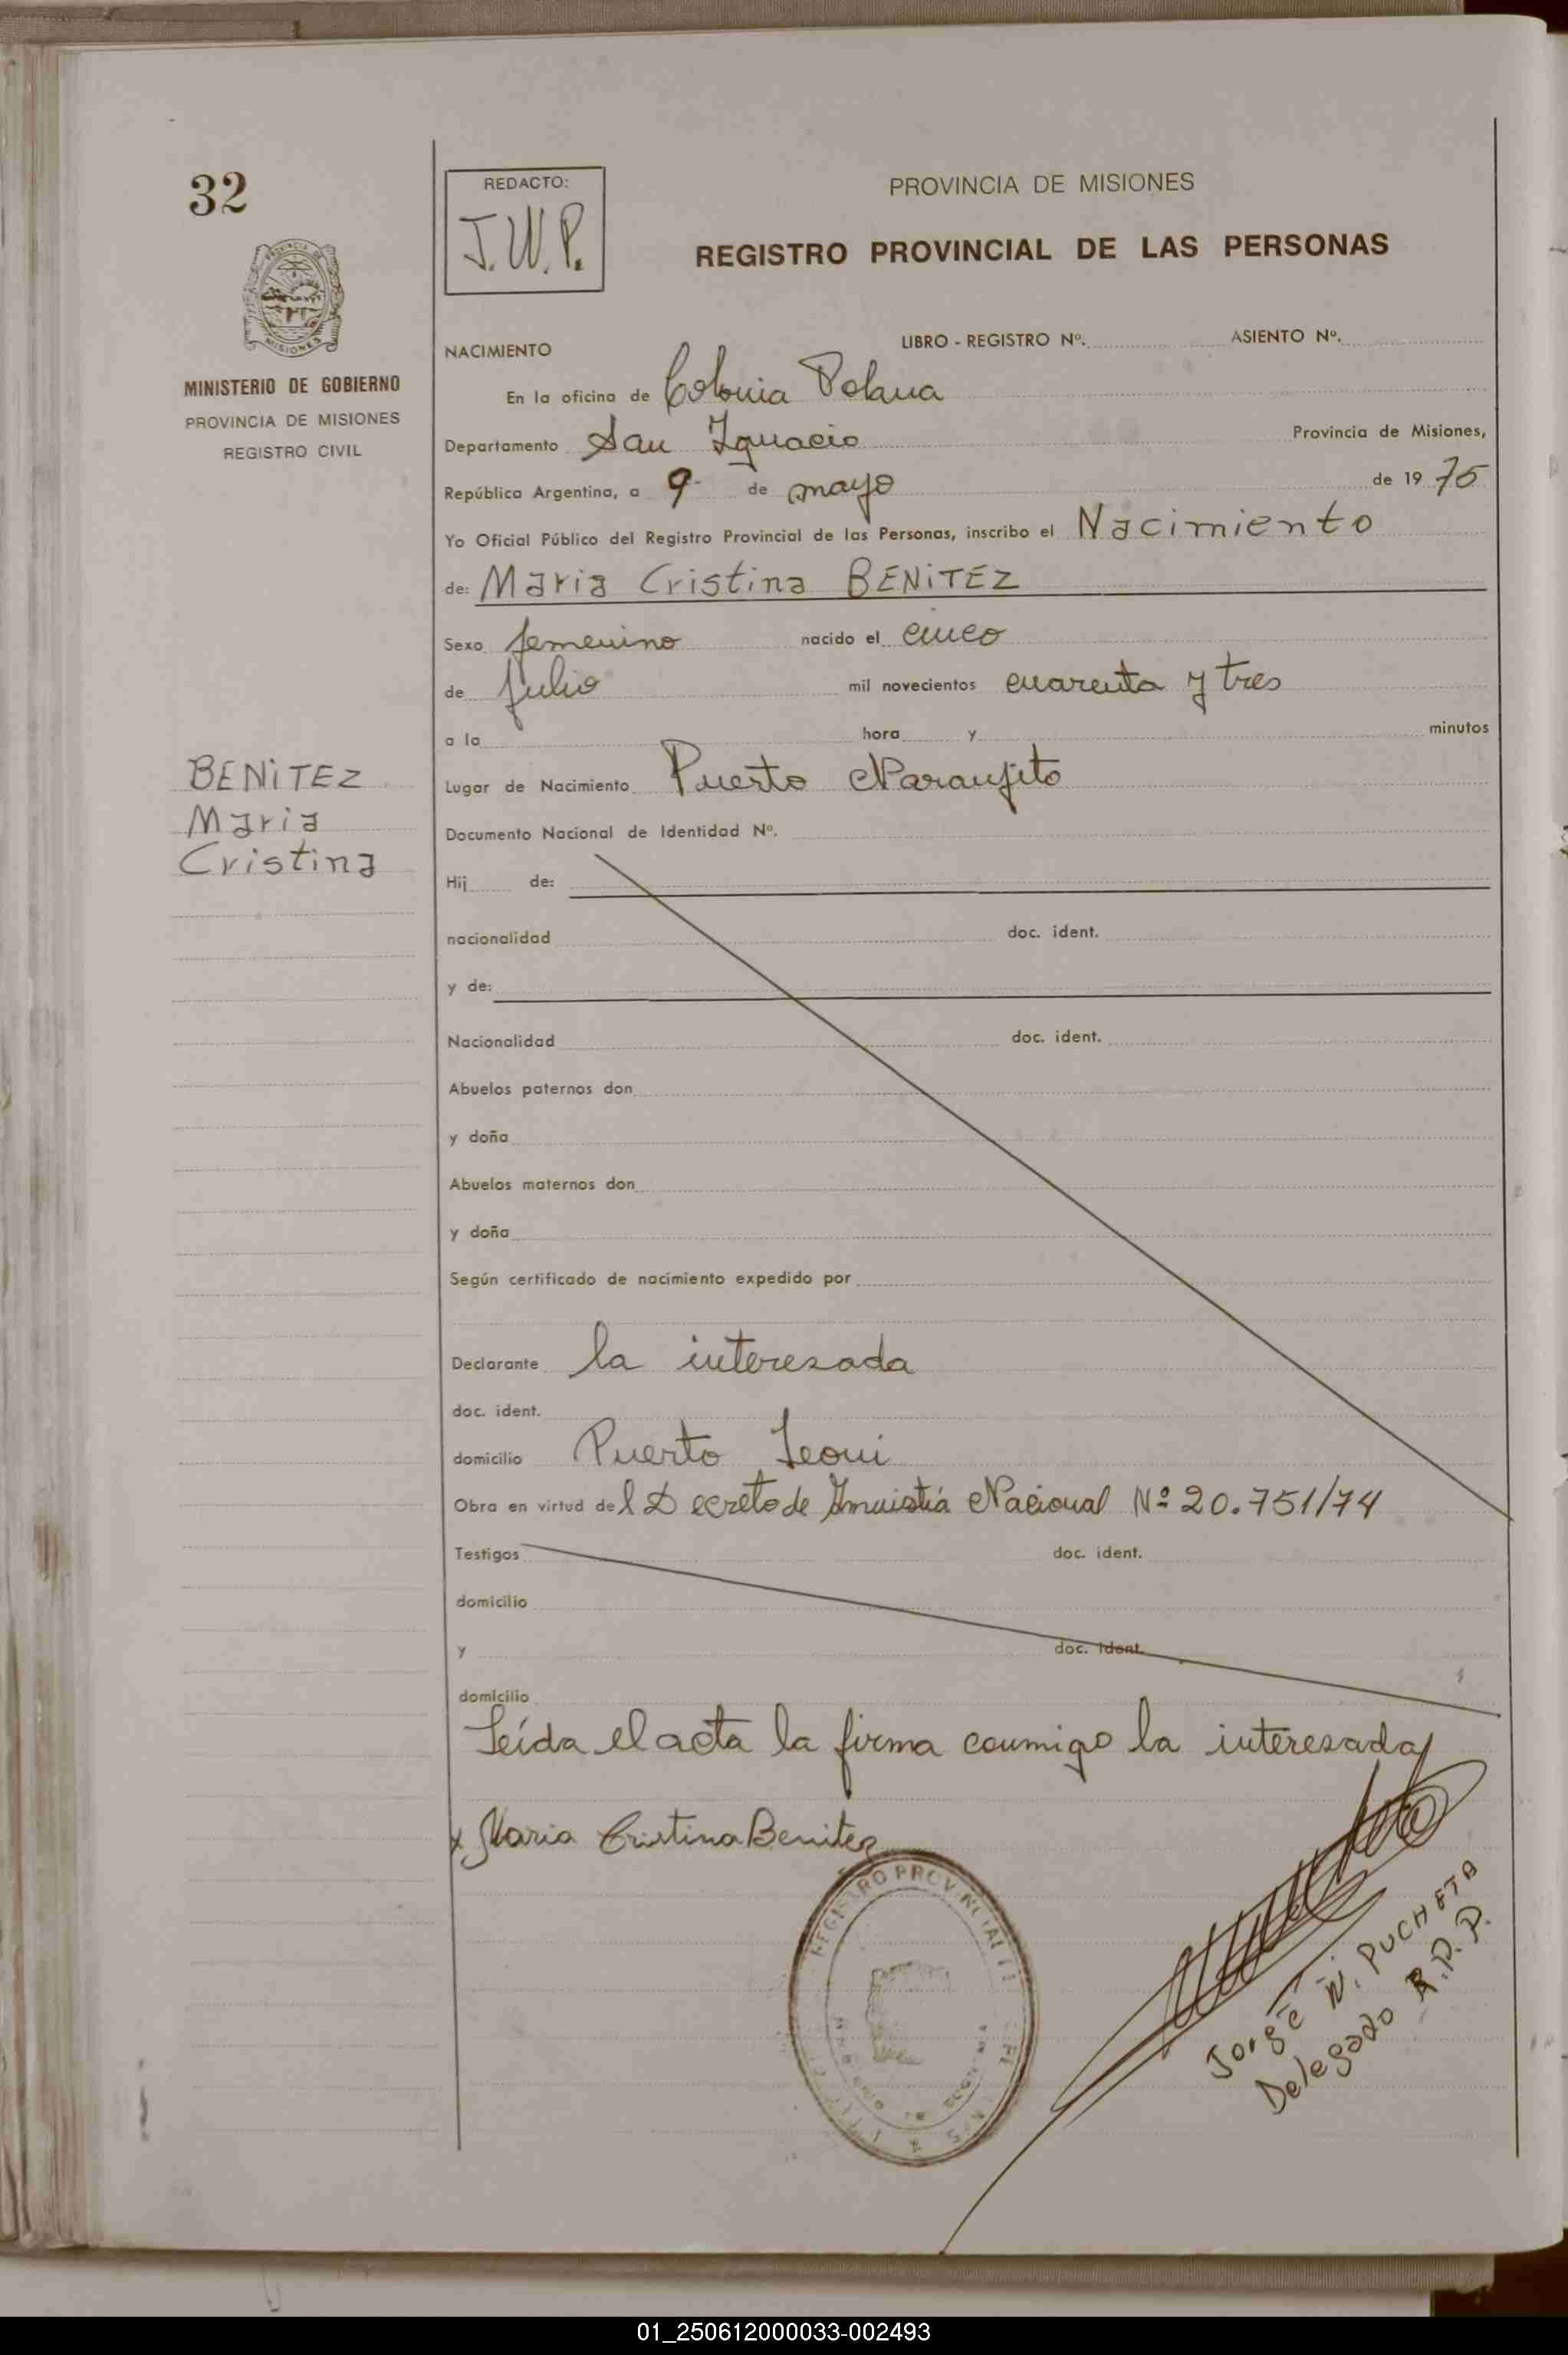 32
PROVINCIA DE MISIONES
MINISTERIO DE GOBIERNO
PROVINCIA DE MISIONES
REGISTRO CIVIL
BENITEZ
Maria
Cristina
REDACTO:
J.W.P.
PROVINCIA DE MISIONES
REGISTRO PROVINCIAL DE LAS PERSONAS
NACIMIENTO LIBRO - REGISTRO Nº. ASIENTO Nº.
En la oficina de Colonia Polana
Departamento San Ignacio Provincia de Misiones,
República Argentina, a 9 de mayo de 19 75
Yo Oficial Público del Registro Provincial de las Personas, inscribo el Nacimiento
de: Maria Cristina BENITEZ
Sexo femenino nacido el cinco
de Julio mil novecientos cuarenta y tres
a la hora y minutos
Lugar de Nacimiento Puerto Naranjito
Documento Nacional de Identidad Nº.
Hij de:
nacionalidad doc. ident.
y de:
Nacionalidad doc. ident.
Abuelos paternos don
y doña
Abuelos maternos don
y doña
Según certificado de nacimiento expedido por
Declarante la interesada
doc. ident.
domicilio Puerto Leoni
Obra en virtud del Decreto de Amnistiá Nacional Nº 20.751/74
Testigos doc. ident.
domicilio
y doc. ident.
domicilio
Leída el acta la firma conmigo la interesada
x Maria Cristina Benitez
REGISTRO PROVINCIAL
Jorge W. PUCHETA
Delegado R.P.P.
01_250612000033-002493